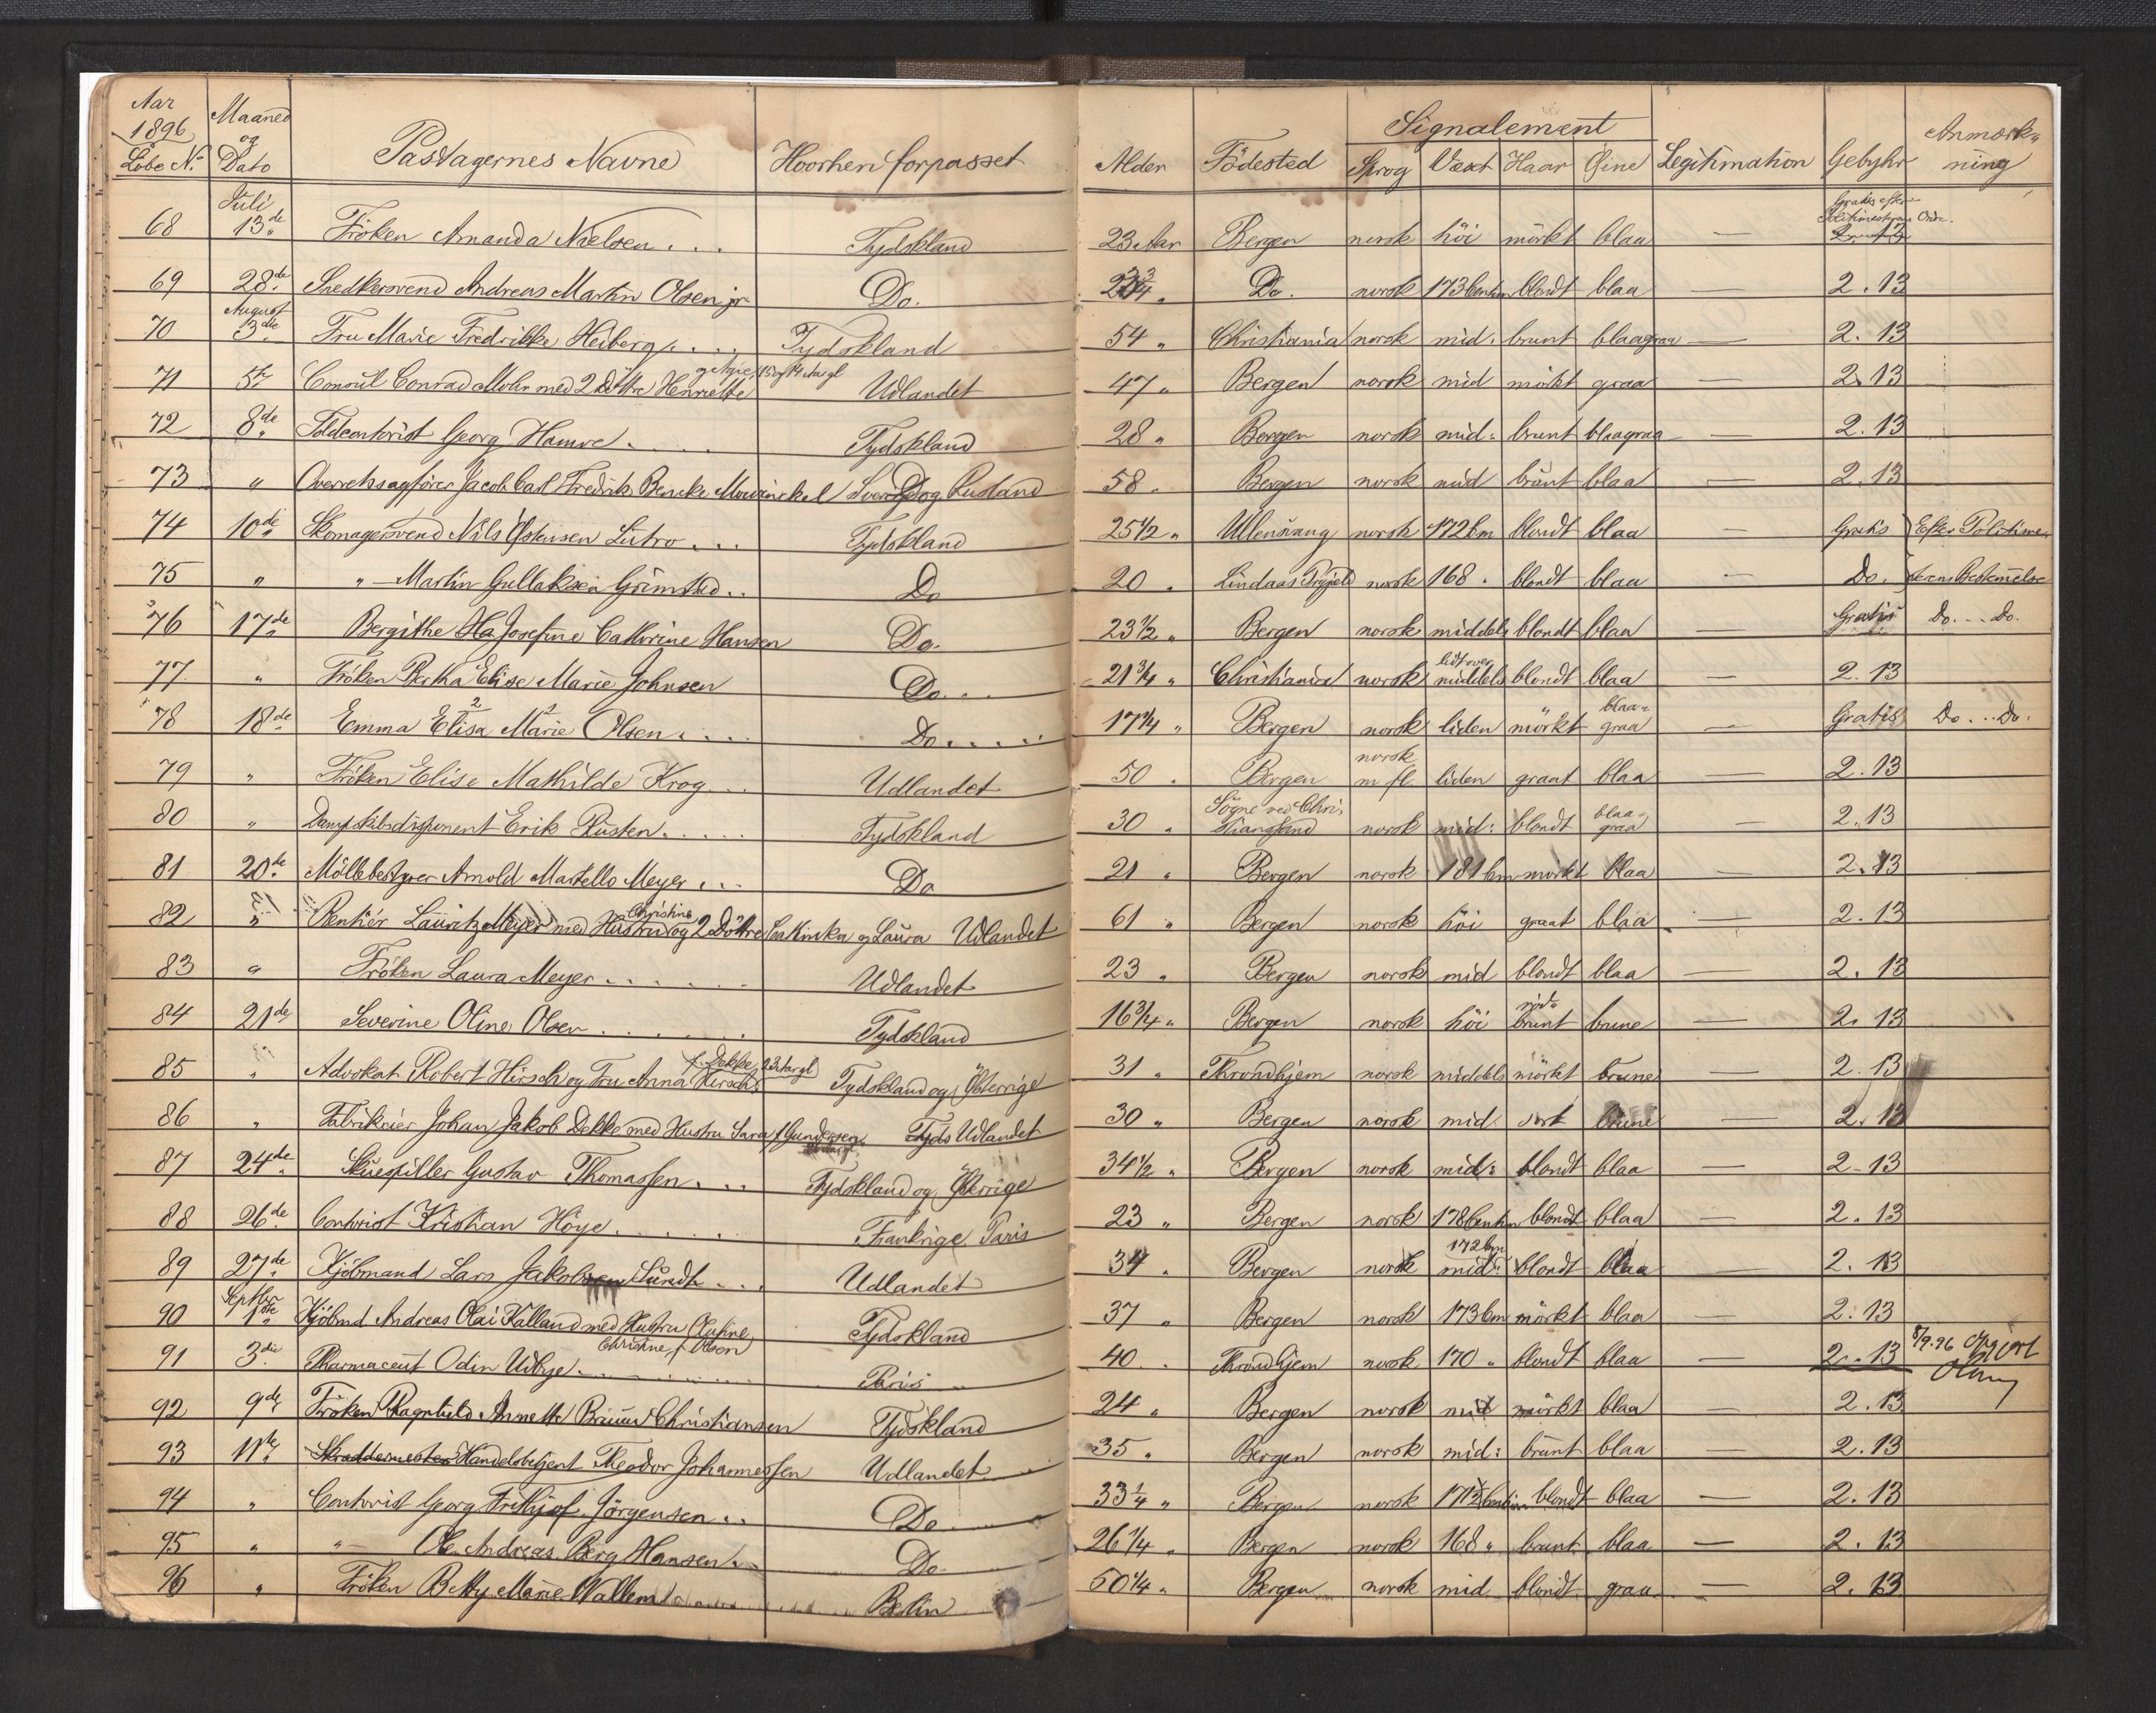 Aar 1896 Löbe No. Maaned og Dato Pastagernes Navne Hvorhen forpasset Alder Födested Signalement Sprog Vext Haar Öine Legitimation Gebyhr Anmærkning
68 Juli 13de Fröken Amanda Nielsen . . . Tydskland 23 Aar Bergen norsk höi mörkt blaa — Gratis efter Politimestrens Ordr. 2.13
69 28de Snedkersvend Andreas Martin Olsen jr. Do. 23 3/4 " Do. norsk 173 Centim blondt blaa 2.13
70 August 3die Fru Marie Fredrikke Heiberg . . . Tydskland 54 " Christiania norsk mid: brunt blaagraa — 2.13
71 5te Consul Conrad Mohn med 2 Döttre Henriette Udlandet 47 " Bergen norsk mid mörkt graa — 2.13
72 8de Toldcontorist Georg Hamre . . . Tydskland 28 " Bergen norsk mid: brunt blaagraa — 2.13
73 " Overretssagförer Jacob Carl Fredrik Bencke Mowinckel Sverig og Rusland 58 " Bergen norsk mid brunt blaa — 2.13
74 10de Skomagersvend Nils Östensen Lutro . . . Tydskland 25 1/2 " Ullensvang norsk 172 Cm blondt blaa — Gratis Efter Politime-
75 " " — Martin Gullaksen Grimstad . . Do 20 " Lindaas Prgjeld norsk 168 " blondt blaa — Do. sterens Bestemelse
76 17de Bergithe Josefine Cathrine Hansen Do. 23 1/2 " Bergen norsk middels blondt blaa — Gratis Do. . . Do.
77 " Fröken Bertha Elise Marie Johnsen Do. . . 21 3/4 " Christiania norsk lidt over middels blondt blaa — 2.13
78 18de Emma Elisa Marie Olsen . . . Do. . . . 17 1/4 " Bergen norsk liden mörkt blaa-graa — Gratis Do. . . Do.
79 " Fröken Elise Mathilde Krog . . . Udlandet 50 " Bergen norsk m fl liden graat blaa — 2.13
80 " Dampskibsdisponent Erik Rusten . . . . . Tydskland 30 " Sögne ved Christiansand norsk mid: blondt blaa-graa — 2.13
81 20de Möllebestyrer Arnold Martello Meyer . . . Do 21 " Bergen norsk 181 Cm mörkt blaa 2.13
82 " Rentiér Lauritz Meyer med Hustru Christine og 2 Döttre Cathinka og Laura Udlandet 61 " Bergen norsk höi graat blaa — 2.13
83 " Fröken Laura Meyer . . . . . . Udlandet 23 " Bergen norsk mid blondt blaa — 2.13
84 21de Severine Oline Olsen . . . . . . Tydskland 16 3/4 " Bergen norsk höi röd-brunt brune — 2.13
85 " Advokat Robert Hirsch og Fru Anna Hirsch f. Dekke, 23 Aar gl Tydskland og Österrige 31 " Throndhjem norsk middels mörkt brune — 2.13
86 " Fabrikeier Johan Jakob Dekke med Hustru Sara f Gundersen Tyds Udlandet 30 " Bergen norsk mid. sort brune — 2.13
87 24de Skuespiller Gustav Thomassen . . . Tydskland og Österrige 34 1/2 " Bergen norsk mid: blondt blaa — 2-13
88 26de Contorist Kristian Höye . . . . . . Frankrige Paris 23 " Bergen norsk 178 Centim blondt blaa — 2.13
89 27de Kjöbmand Lars Jakobsen Sundt . . . Udlandet 34 " Bergen norsk 172 Cm mid: blondt blaa — 2.13
90 Septbr 1ste Kjöbmd Andreas Olai Kalland med Hustru Olufine Christine f. Olsen Tydskland 37 " Bergen norsk 173 Cm mörkt blaa — 2.13
91 3die Pharmaceut Odin Udbye . . . . . . Paris 40 " Throndhjem norsk 170 " blondt blaa — 2.13 8/9.96 Opgjort
92 9de Fröken Ragnhild Annette Bruun Christiansen Tydskland 24 " Bergen norsk mid mörkt blaa — 2.13
93 11te Skræddermester Handelsbetjent Theodor Johannessen Udlandet 35 " Bergen norsk mid: brunt blaa — 2.13
94 " Contorist Georg Frithjof Jörgensen . . Do 33 1/4 " Bergen norsk 171 1/2 Centim blondt blaa — 2.13
95 " " — Ole Andreas Berg Hansen . . Do. 26 1/4 " Bergen norsk 168 " brunt blaa — 2.13
96 " Fröken Betty Marie Wallem . . . Berlin 50 1/4 " Bergen norsk mid. blondt graa — 2.13